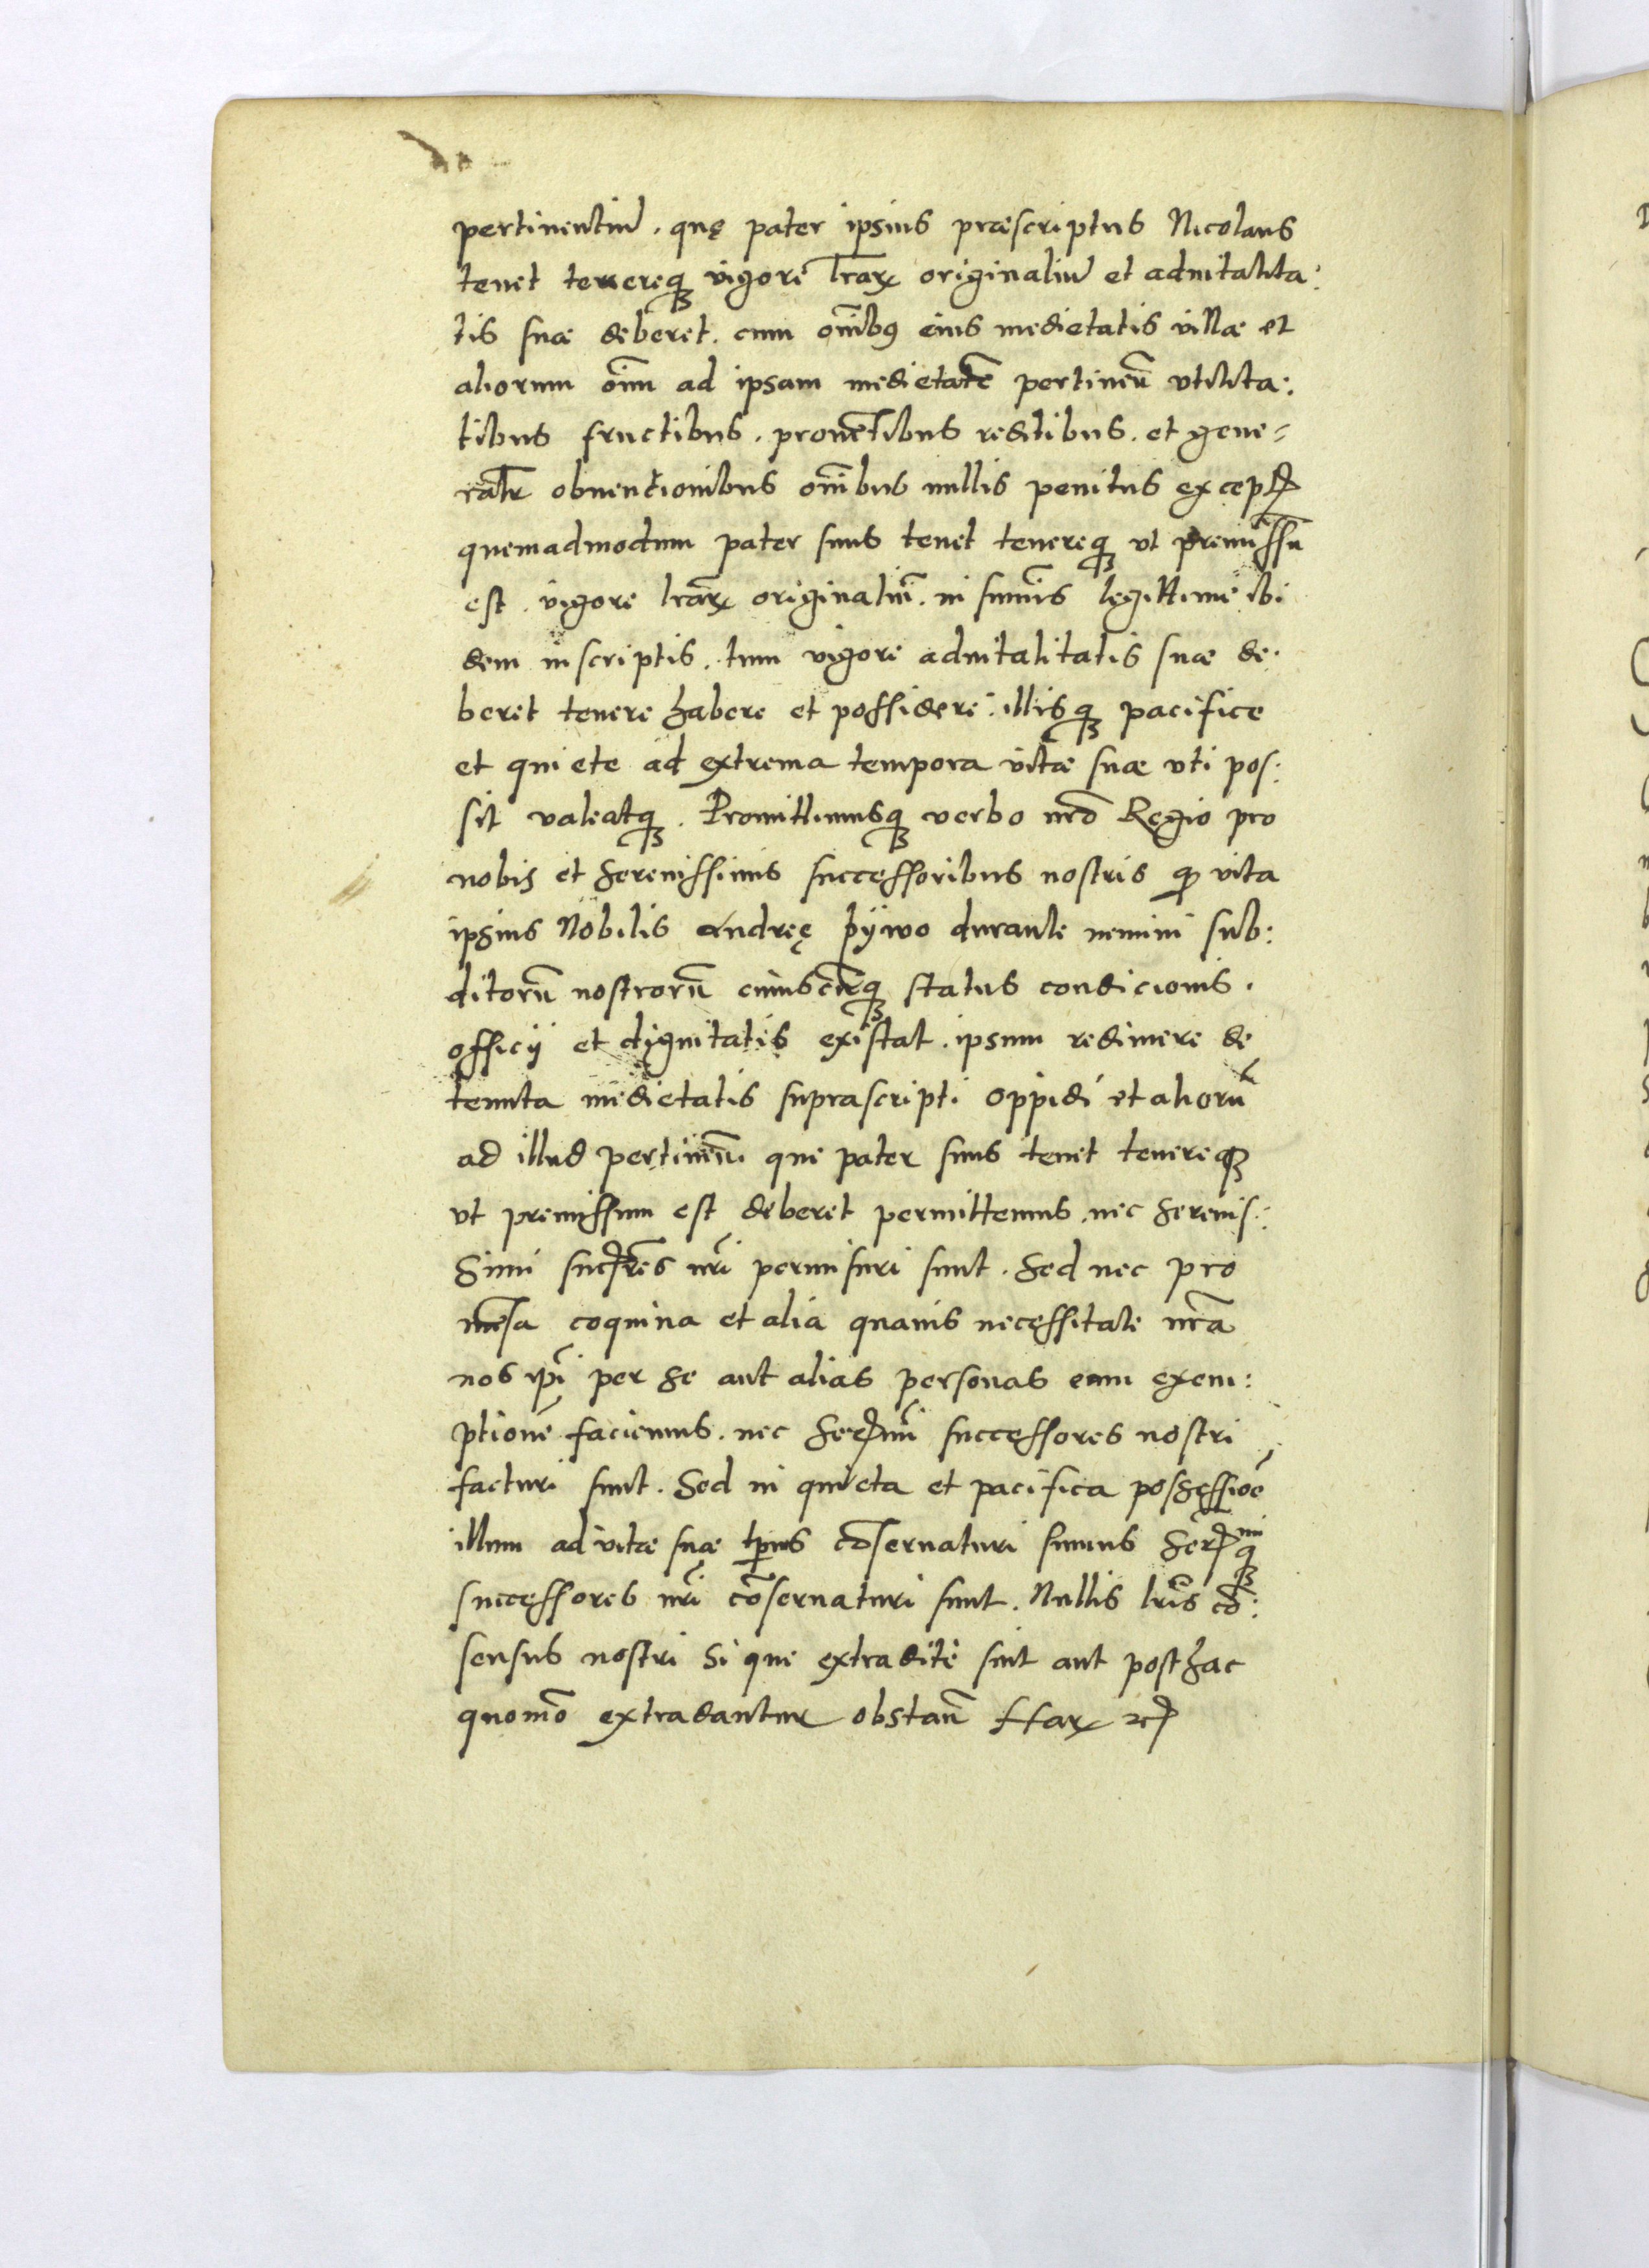 pertinentiū. quę pater ipsius præscriptus Nicolaus
tenet tenereqꝫ vigore lrarꝝ originaliū et aduitalita:
tis suæ deberet. cum oībꝰ eius medietatis villæ et
aliorum oīm ad ipsam medietatē pertineñ vtilita:
tibus fructibus. prouētibus reditibus. et gene=
ralr̄ obuencionibus oībus nullis penitus except̄
quemadmodum pater suus tenet tenereqꝫ vt premissū
est. vigore lrārꝝ originaliū. in sum̄is legittime ibi
dem inscriptis. tum vigore aduitalitatis suæ de.
beret tenere habere et possidere. illisqꝫ pacifice
et quiete ad extrema tempora vitæ suæ vti pos:
sit valeatqꝫ. Promittimusqꝫ verbo nrō Regio pro
nobis et serenissimis successoribus nostris ꝙ vita
ipsius Nobilis Andreę pÿwo durante nemini sub:
ditorū nostrorū cuiuscūqꝫ status condicionis.
officij et dignitatis existat. ipsum redimere de
tenuta medietatis suprascripti oppidi et aliorū
ad illud pertineñ. que pater suus tenet tenereqꝫ
vt premissum est deberet permittemus. nec serenis:
Simi succ̄res nrī permisuri sunt. Sed nec pro
mēsa coquina et alia quauis necessitate nrā
nos ipī per se aut alias personas eam exem:
ptionē faciemus. nec Ser̄mi successores nostri
facturi sunt. Sed in quieta et pacifica possessiōe
illum ad vitæ suæ tp̄us cōseruaturi sumus Ser̄miqꝫ
successores nrī cōseruaturi sunt. Nullis lrīs cō:
sensus nostri Si que extradite sint aut posthac
quomō extradantur obstañ Harꝝ ⁊c̄